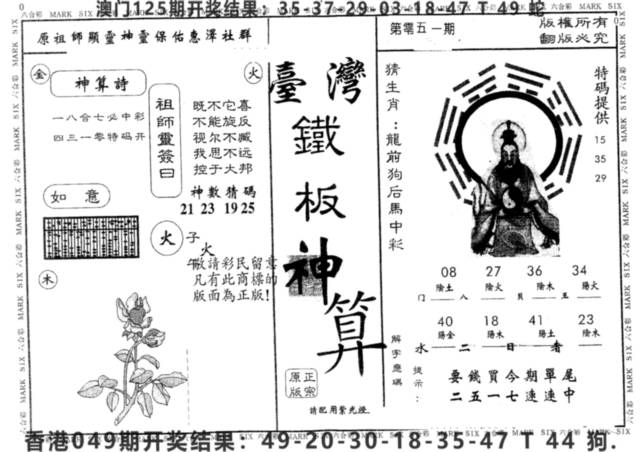 澳门125期开奖结果：35-37-29-03-18-47 T 49 蛇
原祖師顯靈神靈保佑惠澤社群
第零五一期
版權所有
翻版必究
金
神算詩
一八合七必中彩
四三一零特码开
祖師靈簽曰
既不它喜
不能旋反
视尔不臧
我思不远
控于大邦
火
神數猜碼
21 23 19 25
如意
木
火
子
火
午
敬請彩民留意
凡有此商標的
版面為正版!
臺灣
鐵板神算
正宗
原版
請配用紫光燈
猜生肖：龍前狗后馬中彩
特码提供
15
35
29
08 27 36 34
陰土 陰火 陰木 陽火
門 八 貝 五
40 18 41 23
陽金 陽木 陽土 陰木
水 二 日 看
解字應碼
提示：
要錢買今期單尾
二五一七連連中
香港049期开奖结果：49-20-30-18-35-47 T 44 狗.
六合彩 MARK SIX